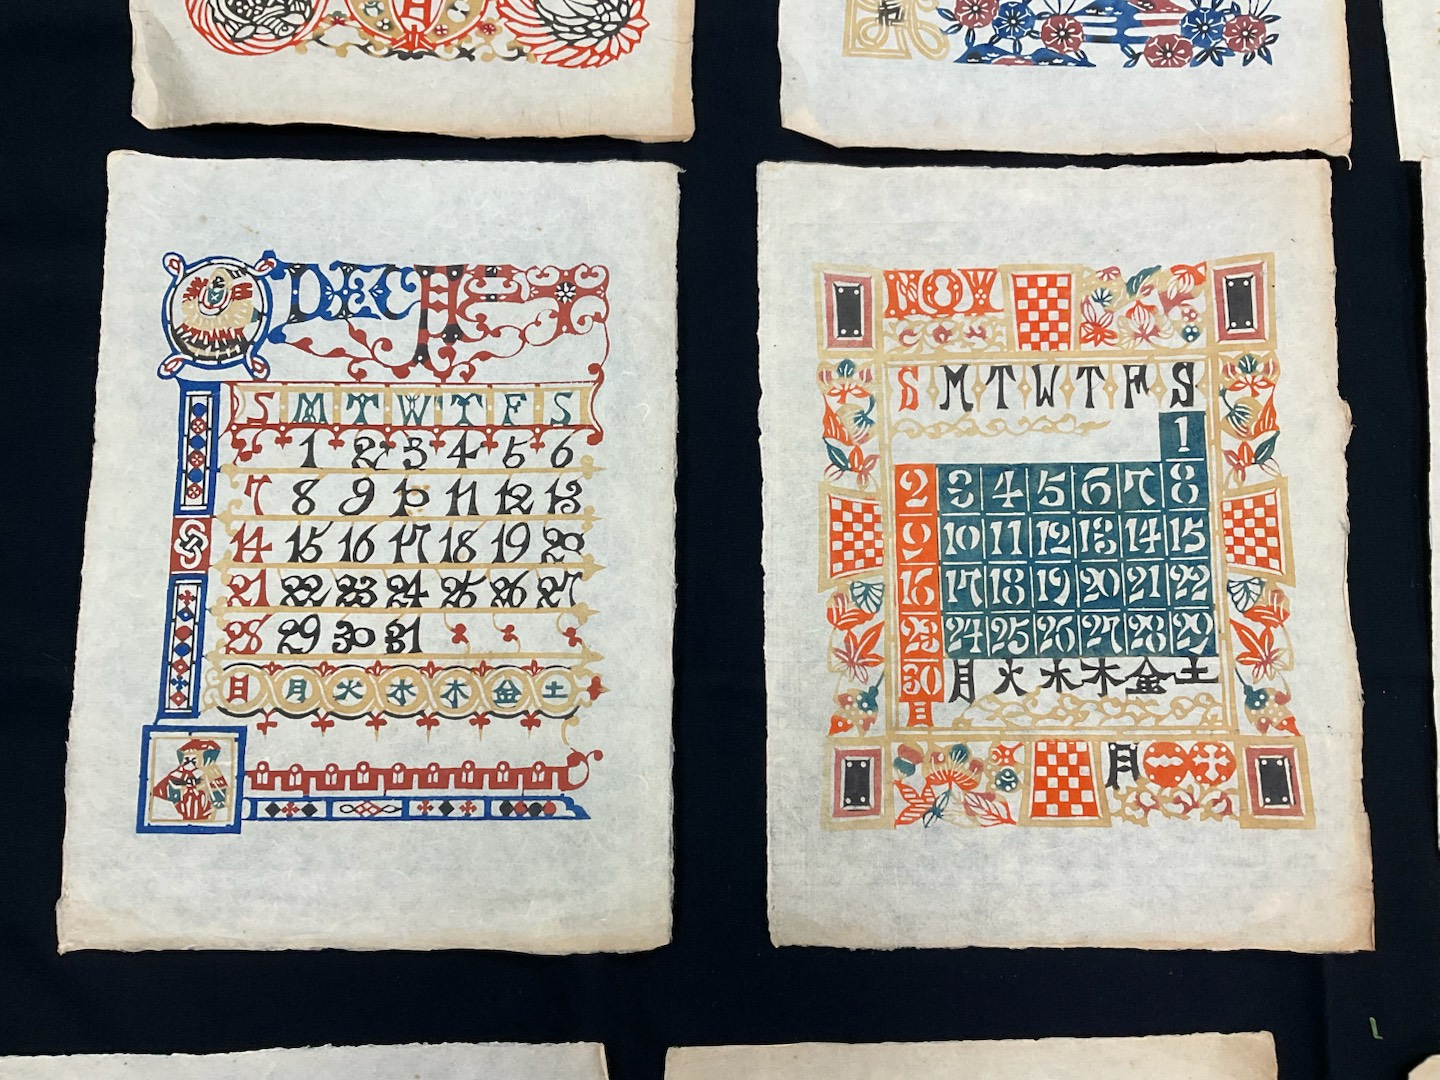 DEC 十二月
S M T W T F S
1 2 3 4 5 6
7 8 9 10 11 12 13
14 15 16 17 18 19 20
21 22 23 24 25 26 27
28 29 30 31
日 月 火 水 木 金 土
NOV
S M T W T F S
1
2 3 4 5 6 7 8
9 10 11 12 13 14 15
16 17 18 19 20 21 22
23 24 25 26 27 28 29
30 月 火 水 木 金 土
日
月